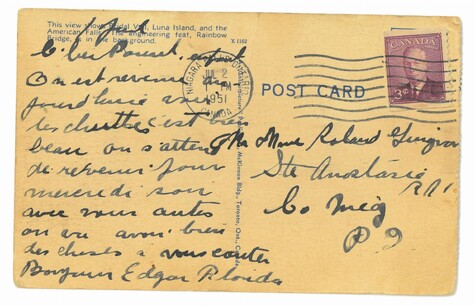 This view shows Bridal Veil, Luna Island, and the
American Falls. The engineering feat, Rainbow
Bridge, is in the background.
X 1162
1 Jul
Cher Parent
On est revenu au
jourdhuie voir
les chuttes c'est bien
beau on s'attend
de revenir pour
mercredi soir
avec vous autes
on va avoir bien
des choses a vous conter
Bonjour Edgar Florida
NIAGARA FALLS ONTARIO
JUL 2
PM
1951
CANADA
POST CARD
CANADA
3¢
McKinnon Bldg., Toronto, Ont., Canada
Mr Mme Roland
Ste Anastasie
R R 1
Co Meg
P Q